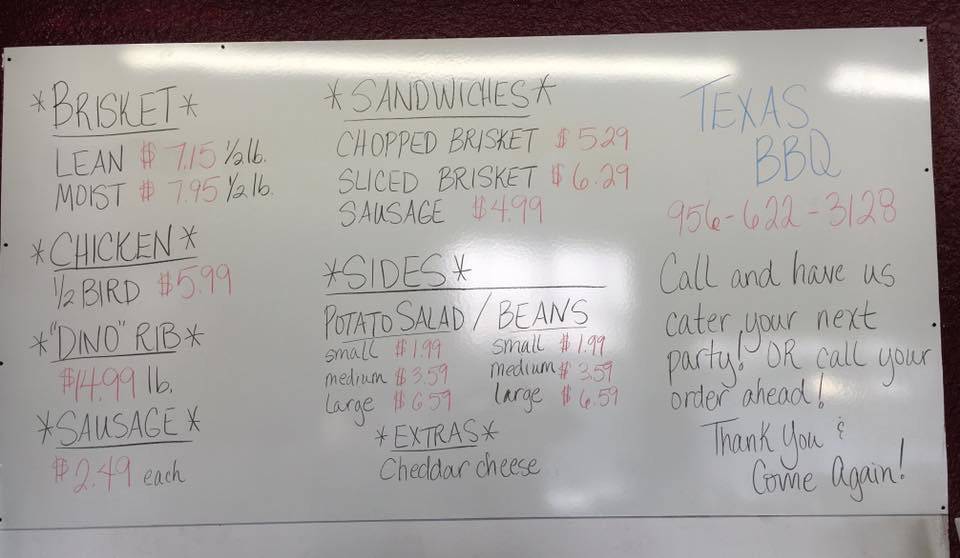 *BRISKET*
LEAN $ 7.15 1/2 lb.
MOIST $ 7.95 1/2 lb.
*CHICKEN*
1/2 BIRD $5.99
*"DINO" RIB*
$14.99 lb.
*SAUSAGE*
$2.49 each
*SANDWICHES*
CHOPPED BRISKET $ 5.29
SLICED BRISKET $ 6.29
SAUSAGE $4.99
*SIDES*
POTATO SALAD / BEANS
small $1.99 small $1.99
medium $3.59 medium $3.59
large $6.59 large $6.59
*EXTRAS*
Cheddar cheese
TEXAS
BBQ
956-622-3128
Call and have us
cater your next
party! OR call your
order ahead!
Thank You &
Come Again!